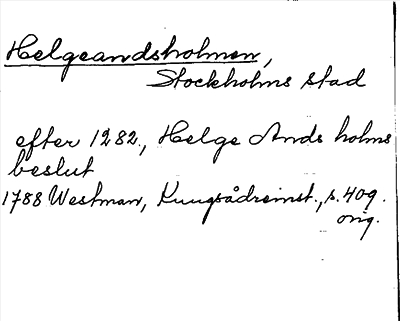 Helgeandsholmen,
Stockholms stad
efter 1282., Helge Ands holms
beslut
1788 Westman, Kungsådreinst., p. 409.
orig.